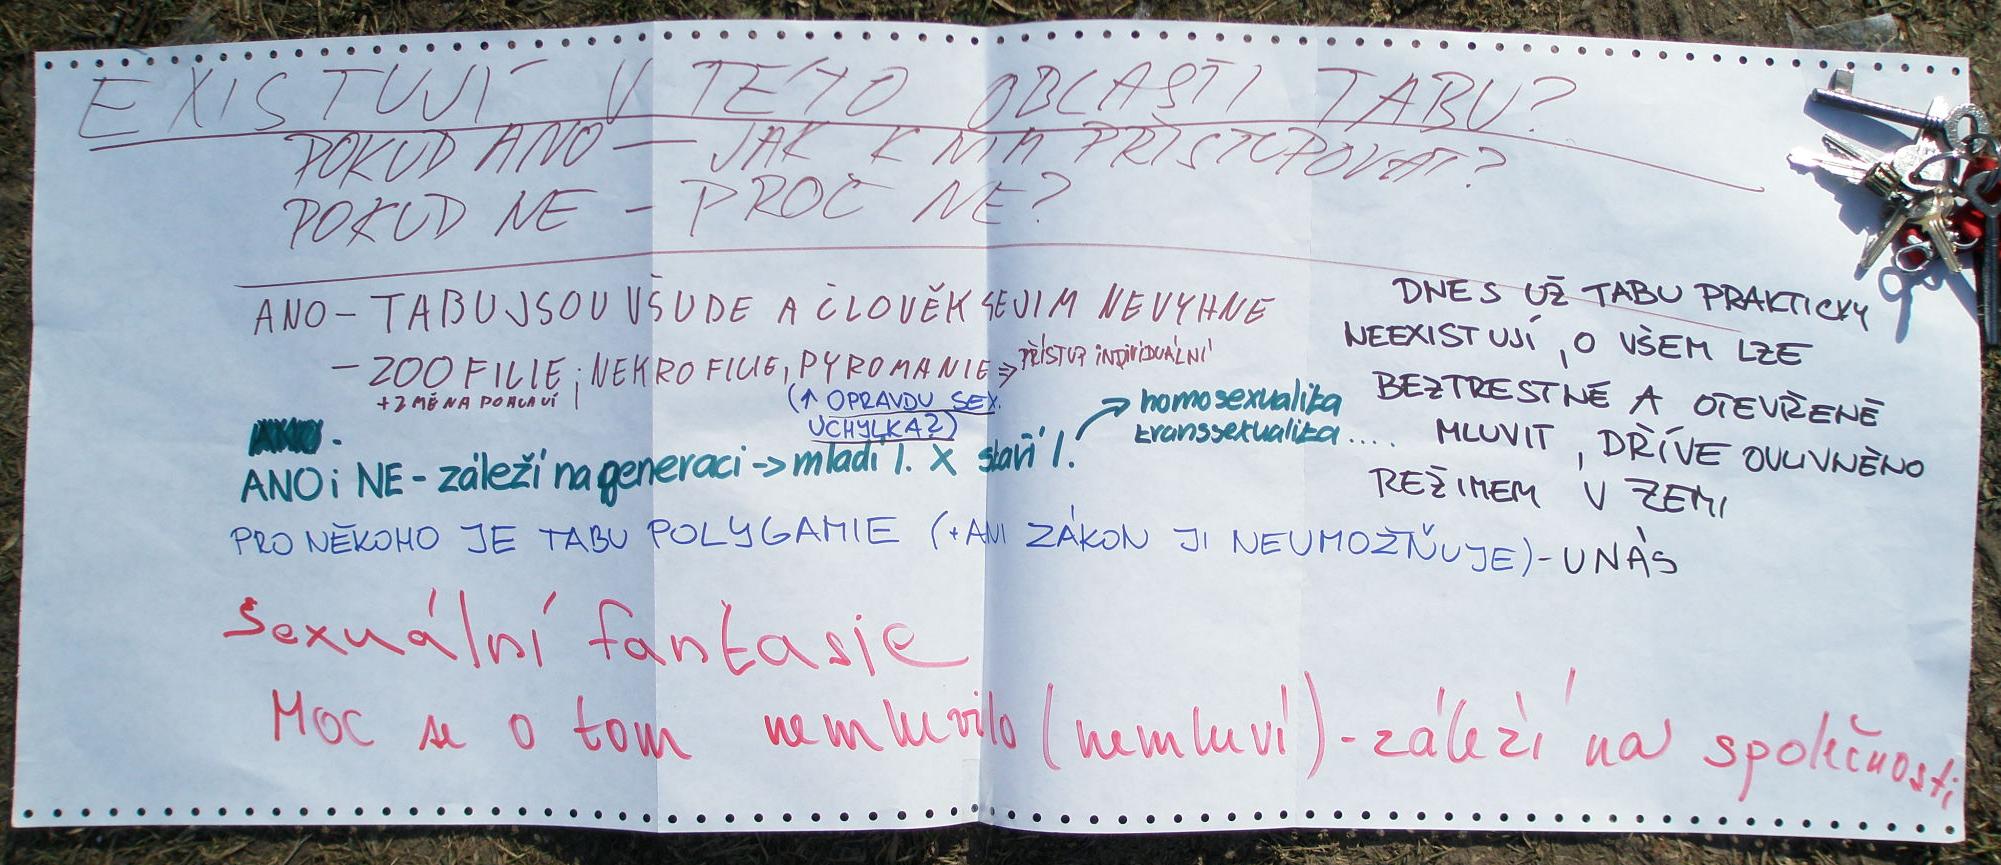 EXISTUJÍ V TÉTO OBLASTI TABU?
POKUD ANO — JAK K NIM PŘISTUPOVAT?
POKUD NE - PROČ NE?
ANO - TABU JSOU VŠUDE A ČLOVĚK SE JIM NEVYHNE
- ZOOFILIE, NEKROFILIE, PYROMANIE => PŘÍSTUP INDIVIDUÁLNÍ
+ ZMĚNA POHLAVÍ
(↑ OPRAVDU SEX.
ÚCHYLKA?)
ANO i NE - záleží na generaci -> mladí l. X staří l.
homosexualita
transsexualita ....
PRO NĚKOHO JE TABU POLYGAMIE (+ ANI ZÁKON JI NEUMOŽŇUJE) - U NÁS
DNES UŽ TABU PRAKTICKY
NEEXISTUJÍ, O VŠEM LZE
BEZTRESTNĚ A OTEVŘENĚ
MLUVIT, DŘÍVE OVLIVNĚNO
REŽIMEM V ZEMI
Sexuální fantasie
Moc se o tom nemluvilo (nemluví) - záleží na společnosti